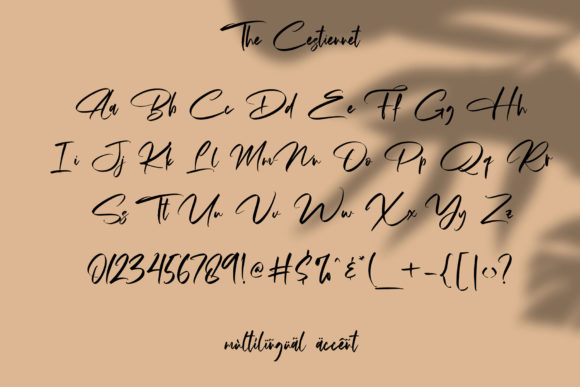 The Cestiennet
Aa Bb Cc Dd Ee Ff Gg Hh
Ii Jj Kk Ll Mm Nn Oo Pp Qq Rr
Ss Tt Uu Vv Ww Xx Yy Zz
0123456789!@#$%^&*(_+-{[|<>?
mùltilïngùäl äccënt